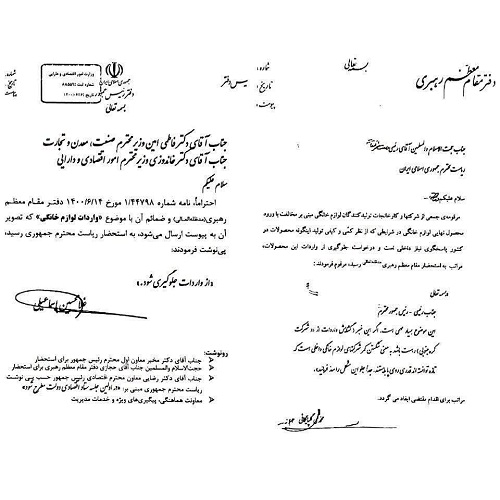 بسمه تعالی
دفتر مقام معظم رهبری
شماره:
تاریخ:
پیوست:
جناب حجت الاسلام والمسلمین آقای رئیسی
ریاست محترم جمهوری اسلامی ایران
سلام علیکم
مرقومه‌ی جمعی از شرکتها و کارخانجات تولیدکنندگان لوازم خانگی مبنی بر مخالفت با ورود
محصول نهایی لوازم خانگی در شرایطی که از نظر کمّی و کیفی تولید اینگونه محصولات در
کشور پاسخگوی نیاز داخلی است و درخواست جلوگیری از واردات این محصولات،
مراتب به استحضار مقام معظم رهبری مدظله‌العالی رسید، مرقوم فرمودند:
بسمه تعالی
جناب رئیسی - رئیس جمهور محترم
این موضوع بسیار مهمی است، اگر این خبر (گشایش واردات از دو شرکت
کره جنوبی) راست باشد به معنی شکستن کمر شرکتهای لوازم خانگی داخلی است که
تازه توانسته‌اند قدری روی پا بایستند، جداً جلو این مشکل را سد فرمایید،
مراتب برای اقدام مقتضی ایفاد می گردد.
جمهوری اسلامی ایران
دفتر رئیس جمهور
بسمه تعالی
وزارت امور اقتصادی و دارایی
شماره ثبت
تاریخ
رئیس دفتر
شماره:
تاریخ:
پیوست:
جناب آقای دکتر فاطمی امین وزیر محترم صنعت، معدن و تجارت
جناب آقای دکتر خاندوزی وزیر محترم امور اقتصادی و دارایی
سلام علیکم
احتراماً، نامه شماره ۱/۴۴۷۹۸ مورخ ۱۴۰۰/۶/۱۴ دفتر مقام معظم
رهبری (مدظله‌العالی) و ضمائم آن با موضوع «واردات لوازم خانگی» که تصویر
آن به پیوست ارسال می‌شود، به استحضار ریاست محترم جمهوری رسید،
پی‌نوشت فرمودند:
«از واردات جلوگیری شود.»
غلامحسین اسماعیلی
رونوشت:
جناب آقای دکتر مخبر معاون اول محترم رئیس جمهور برای استحضار
حجت‌الاسلام والمسلمین جناب آقای حجازی دفتر مقام معظم رهبری برای استحضار
جناب آقای دکتر رضایی معاون محترم اقتصادی رئیس جمهور حسب پی نوشت
ریاست محترم جمهوری مبنی بر: «در اولین جلسه ستاد اقتصادی دولت مطرح شود»
معاونت هماهنگی، پیگیری‌های ویژه و خدمات مدیریت